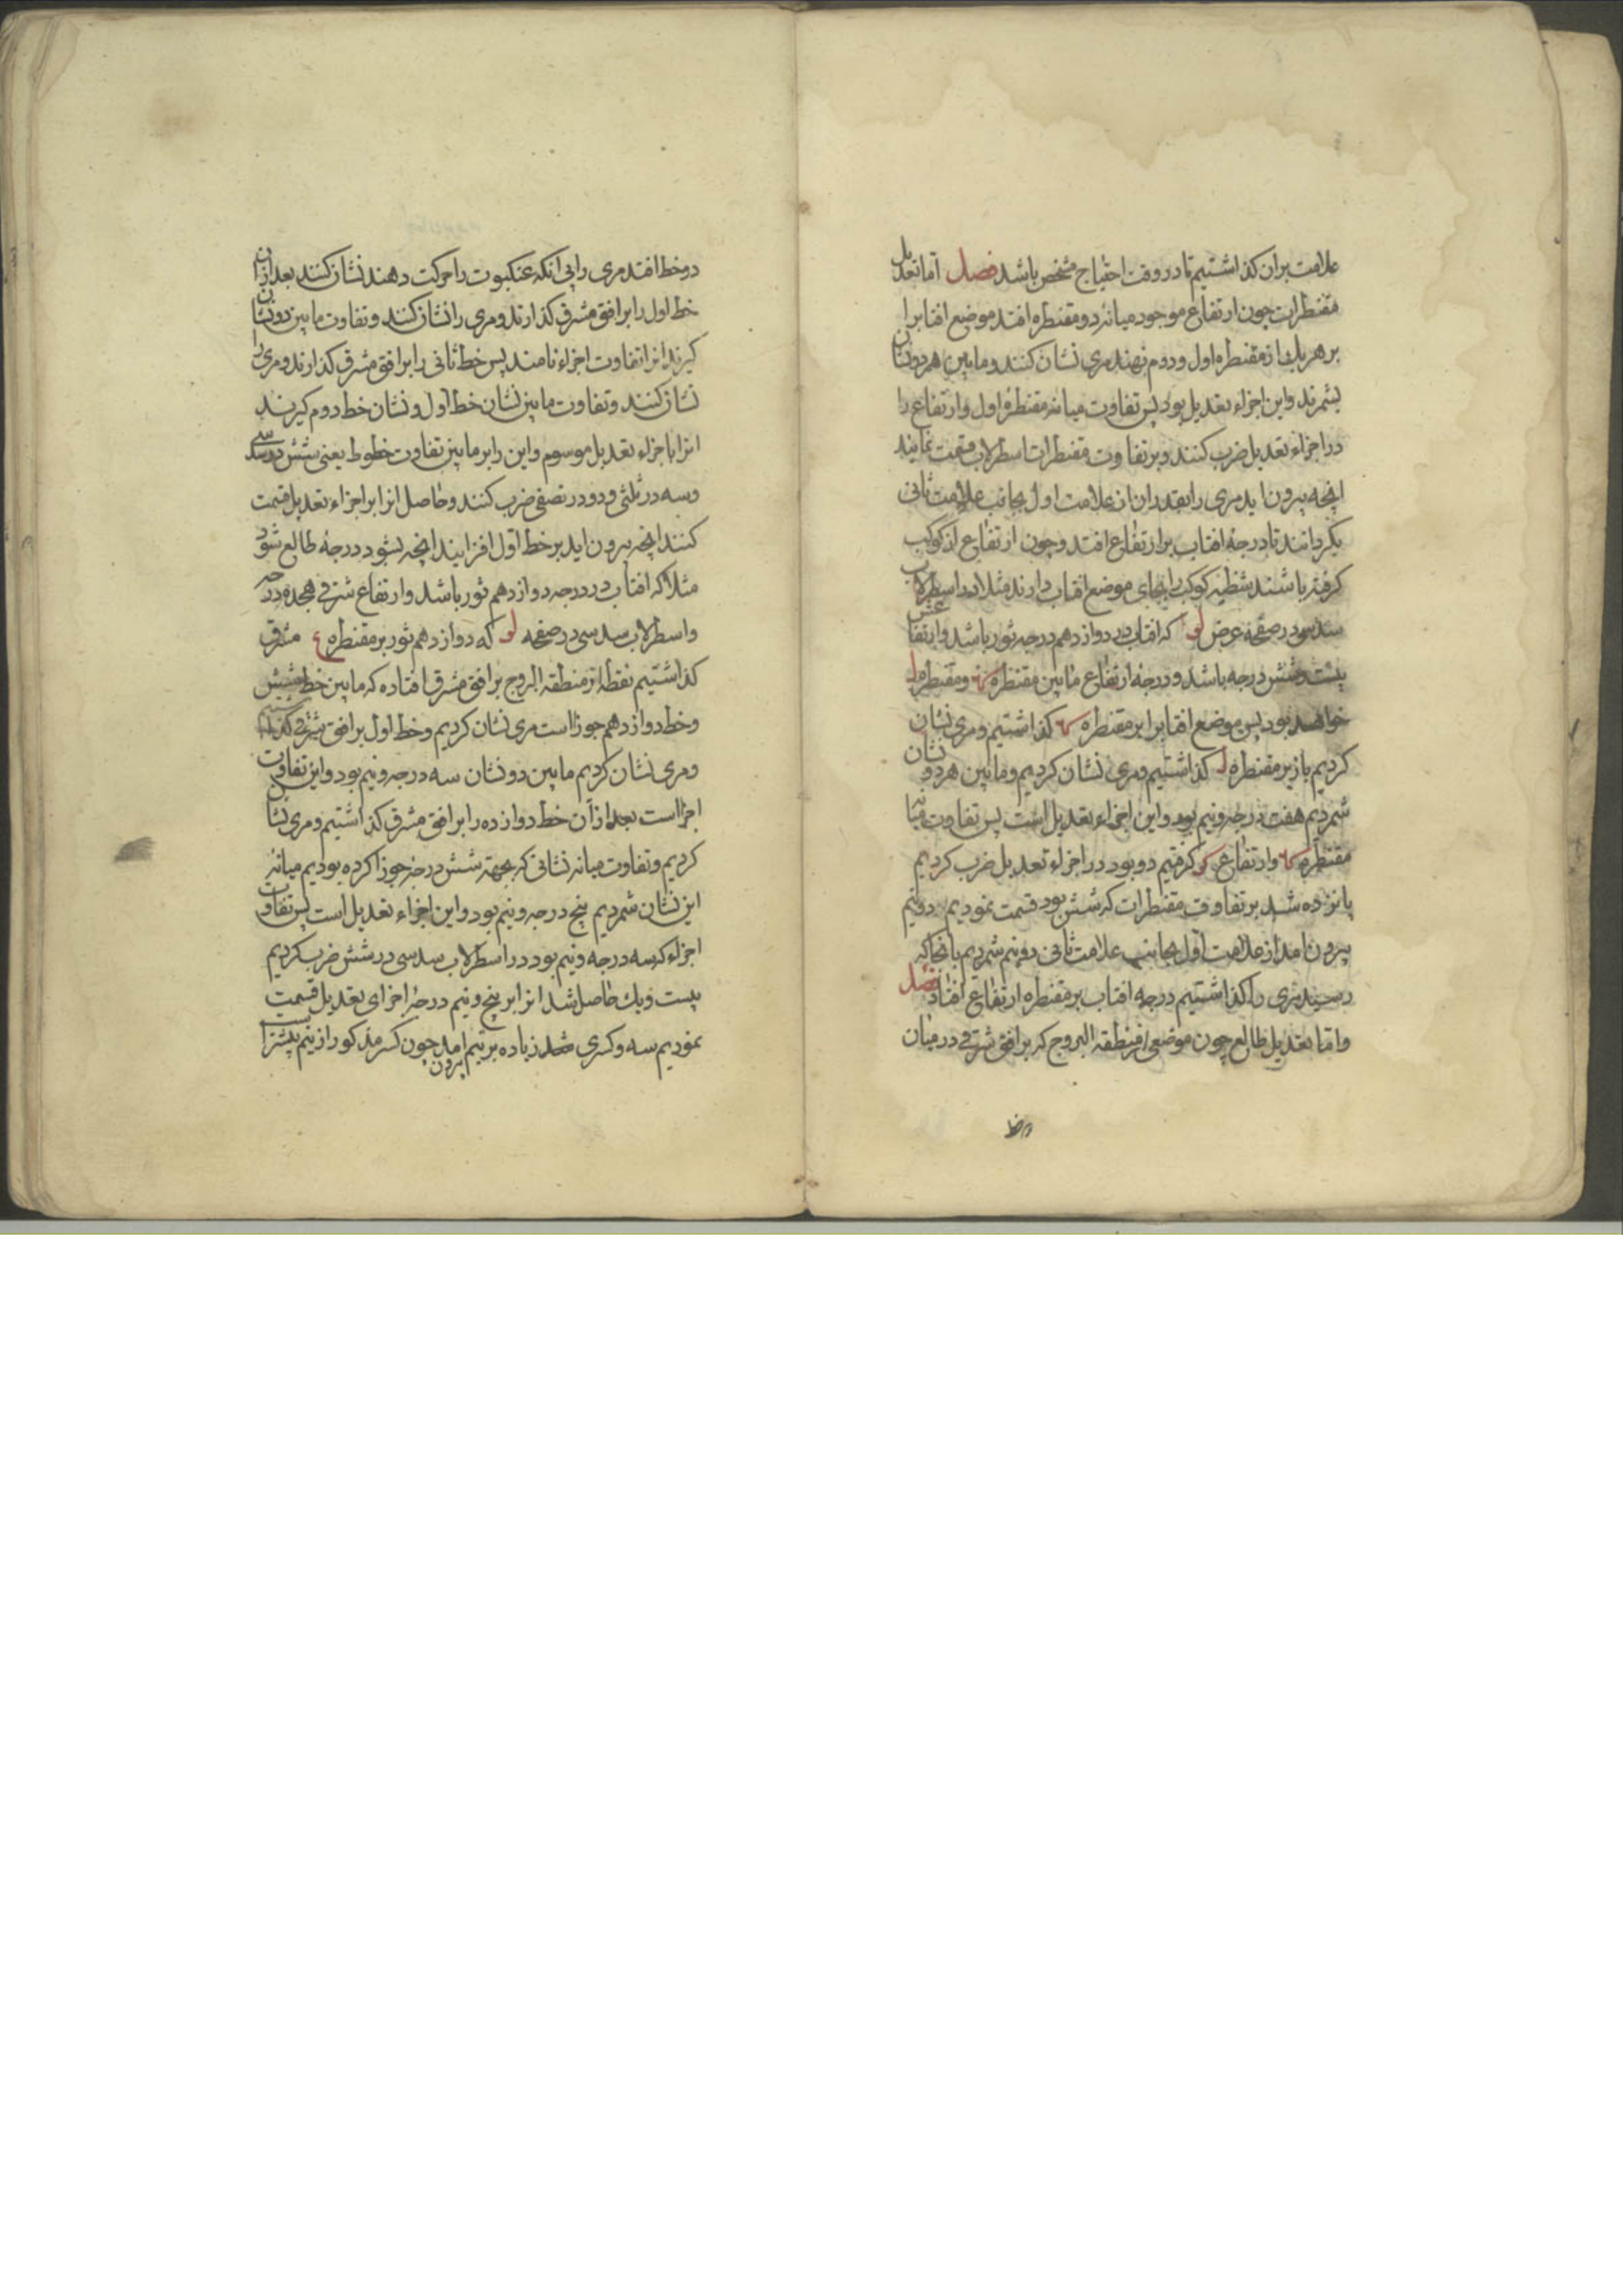 علامت بران کذاشتیم تا در وقت احتیاج مشخص باشد فصل اما تعدیل
مقنطرات چون ارتفاع موجود میانهٔ دو مقنطره افتد موضع افتابرا
بر هریک از مقنطره اول و دوم نهند مری نشان کنند و مابین هر دو نشان
بشمرند و این اجزاء تعدیل بود پس تفاوت میانه مقنطرهٔ اول و ارتفاع را
در اجزاء تعدیل ضرب کنند و بر تفاوت مقنطرات اسطرلاب قسمت نمایند
انچه بیرون اید مری را بقدر ان از علامت اول بجانب علامت ثانی
بکردانند تا درجهٔ افتاب بر ارتفاع افتد و چون ارتفاع از کوکب
کرفته باشند شظیه کوکب را بجای موضع افتاب دارند مثلا در اسطرلاب
سدسی در صفحه عرض لو که افتاب در دوازدهم درجه ثور باشد و ارتفاعش
بیست و شش درجه باشد و درجهٔ ارتفاع مابین مقنطره کد و مقنطره ل
خواهد بود پس موضع افتابرا بر مقنطره کد کذاشتیم و مری نشان
کردیم باز بر مقنطره ل کذاشتیم و مری نشان کردیم و مابین هر دو نشان
شمردیم هفت درجه و نیم بود و این اجزاء تعدیل است پس تفاوت میانه
مقنطره کد و ارتفاع کو کرفتیم دو بود در اجزاء تعدیل ضرب کردیم
پانزده شد بر تفاوت مقنطرات که شش بود قسمت نمودیم دو نیم
بیرون امد از علامت اول بجانب علامت ثانی دو نیم شمردیم بانجا که
رسید مری را کذاشتیم درجه افتاب بر مقنطره ارتفاع افتاد فصل
و اما تعدیل طالع چون موضعی از منطقه البروج که بر افق شرقی در میان
دو خط
دو خط افتد مری را بی انکه عنکبوت را حرکت دهند نشان کنند بعد از ان
خط اول را بر افق مشرق کذارند و مری را نشان کنند و تفاوت مابین دو نشان
کیرند انرا تفاوت اجزاء نامند پس خط ثانی را بر افق مشرق کذارند و مری را
نشان کنند و تفاوت مابین نشان خط اول و نشان خط دوم کیرند
انرا باجزاء تعدیل موسوم و این را بر مابین تفاوت خطوط یعنی شش در سدسی
و سه در ثلثی و دو در نصفی ضرب کنند و حاصل انرا بر اجزاء تعدیل قسمت
کنند انچه بیرون اید بر خط اول افزایند انچه بشود درجهٔ طالع شود
مثلا که افتاب در درجه دوازدهم ثور باشد و ارتفاع شرقی هجده درجه
و اسطرلاب سدسی در صفحه لو که دوازدهم ثور بر مقنطره مشرق
کذاشتیم نقطه از منطقه البروج بر افق مشرق افتاده که مابین خط شیش
و خط دوازدهم جوزا است مری نشان کردیم و خط اول بر افق شرقی کذاشتیم
و مری نشان کردیم مابین دو نشان سه درجه و نیم بود و این تفاوت
اجزا است بعد از آن خط دوازده را بر افق مشرق کذاشتیم و مری نشان
کردیم و تفاوت میانه نشانی که بجهة شش درجهٔ جوزا کرده بودیم میانهٔ
این نشان شمردیم پنج درجه و نیم بود و این اجزاء تعدیل است پس تفاوت
اجزاء که سه درجه و نیم بود در اسطرلاب سدسی در شش ضرب کردیم
بیست و یک حاصل شد انرا بر پنج و نیم درجهٔ اجزای تعدیل قسمت
نمودیم سه و کسری زیاده بر نیم بیرون امد چون کسر مذکور از نیم بیشتر است